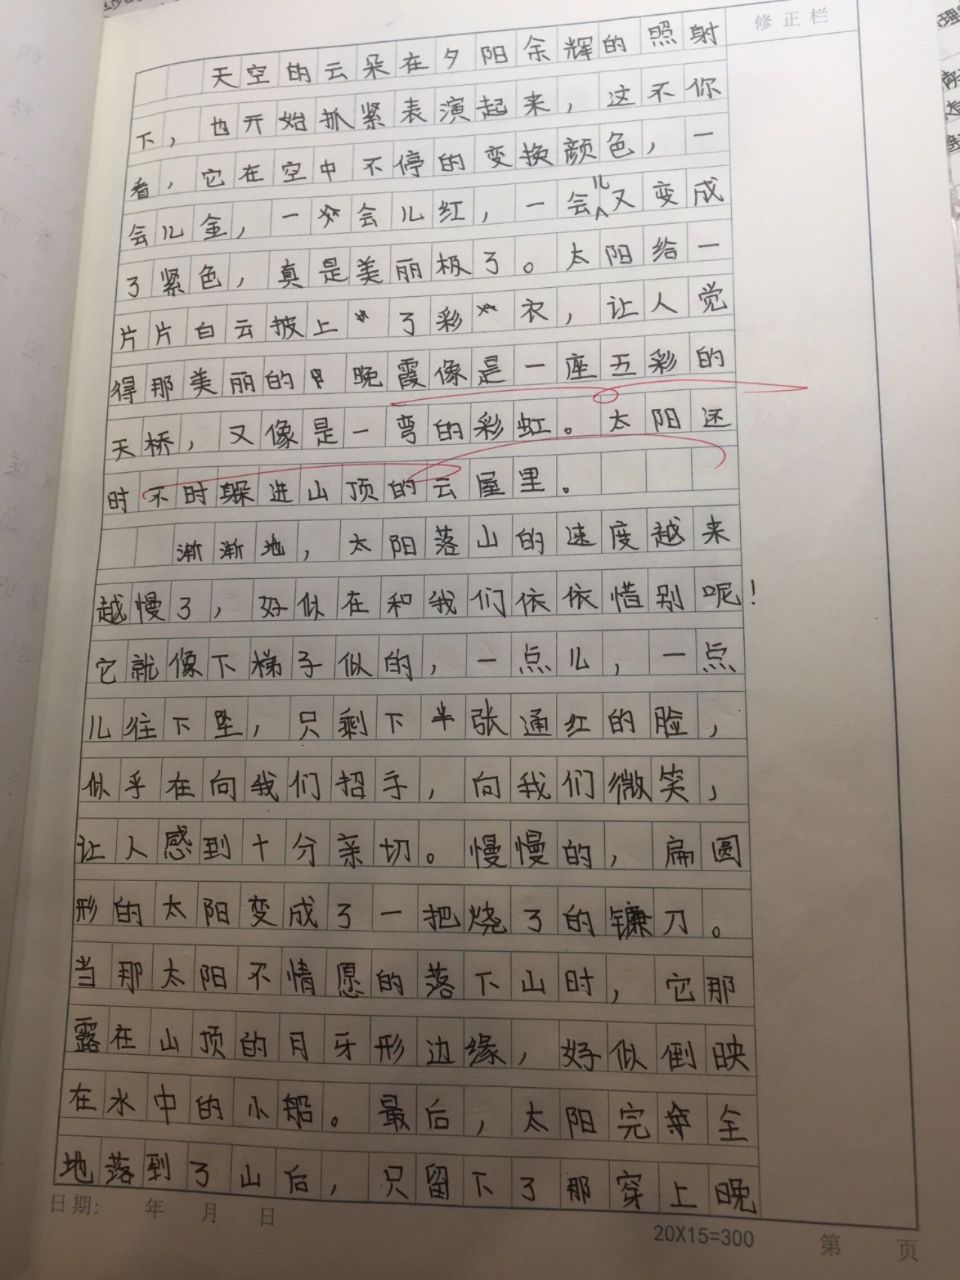 修正栏
天空的云朵在夕阳余辉的照射
下，也开始抓紧表演起来，这不你
看，它在空中不停的变换颜色，一
会儿金，一会儿红，一会儿又变成
了紧色，真是美丽极了。太阳给一
片片白云披上了彩衣，让人觉
得那美丽的晚霞像是一座五彩的
天桥，又像是一弯的彩虹。太阳还
时不时躲进山顶的云屋里。
渐渐地，太阳落山的速度越来
越慢了，好似在和我们依依惜别呢！
它就像下梯子似的，一点儿，一点
儿往下坠，只剩下半张通红的脸，
似乎在向我们招手，向我们微笑，
让人感到十分亲切。慢慢的，扁圆
形的太阳变成了一把烧了的镰刀。
当那太阳不情愿的落下山时，它那
露在山顶的月牙形边缘，好似倒映
在水中的小船。最后，太阳完全
地落到了山后，只留下了那穿上晚
日期： 年 月 日
20X15=300
第 页